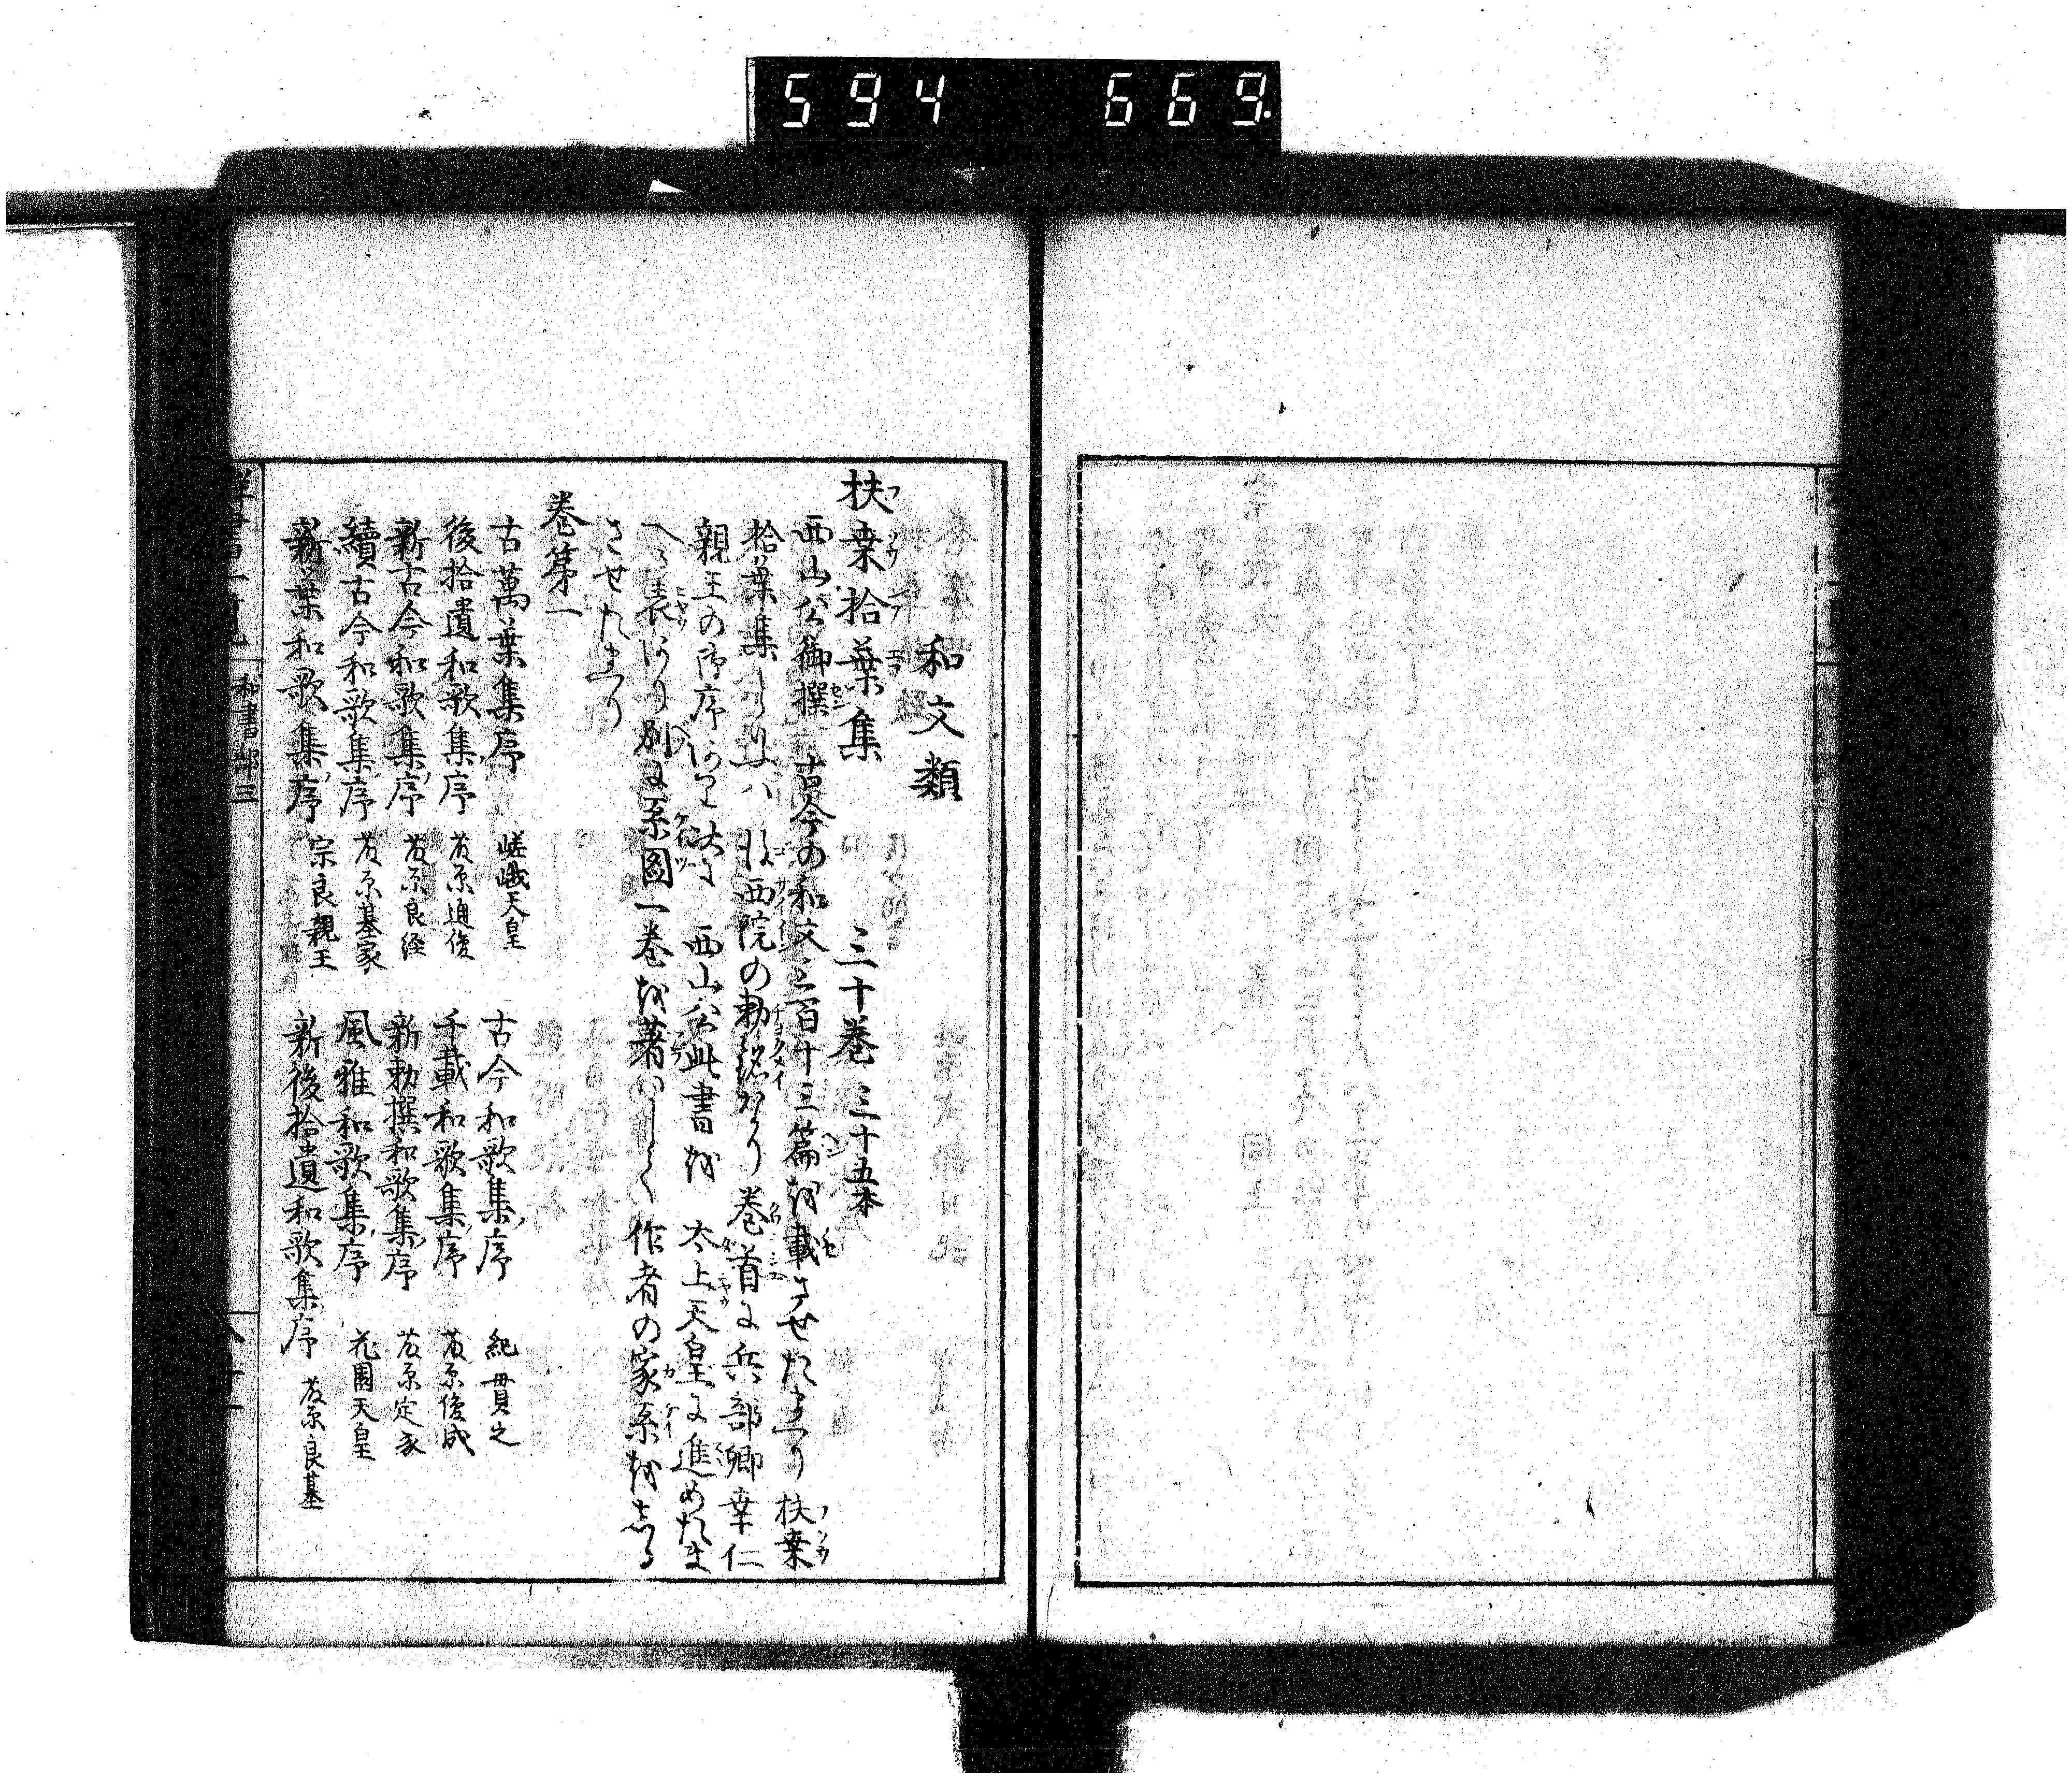 594 669
和文類
扶桒拾葉集 三十巻 三十五本
西山公御撰 古今の和文三百十三篇を載させたまへり 扶桒
拾葉集といふハ 後西院の勅銘なり 巻首に兵部卿幸仁
親王の御序あり 次に 西山公此書を 太上天皇に進めたま
へる表あり 別に系圖一巻を著ハして 作者の家系をしる
させたまへり
巻第一
古萬葉集序 嵯峨天皇 古今和歌集序 紀貫之
後拾遺和歌集序 藤原通俊 千載和歌集序 藤原俊成
新古今和歌集序 藤原良経 新勅撰和歌集序 藤原定家
續古今和歌集序 藤原基家 風雅和歌集序 花園天皇
新葉和歌集序 宗良親王 新後拾遺和歌集序 藤原良基
和書部三